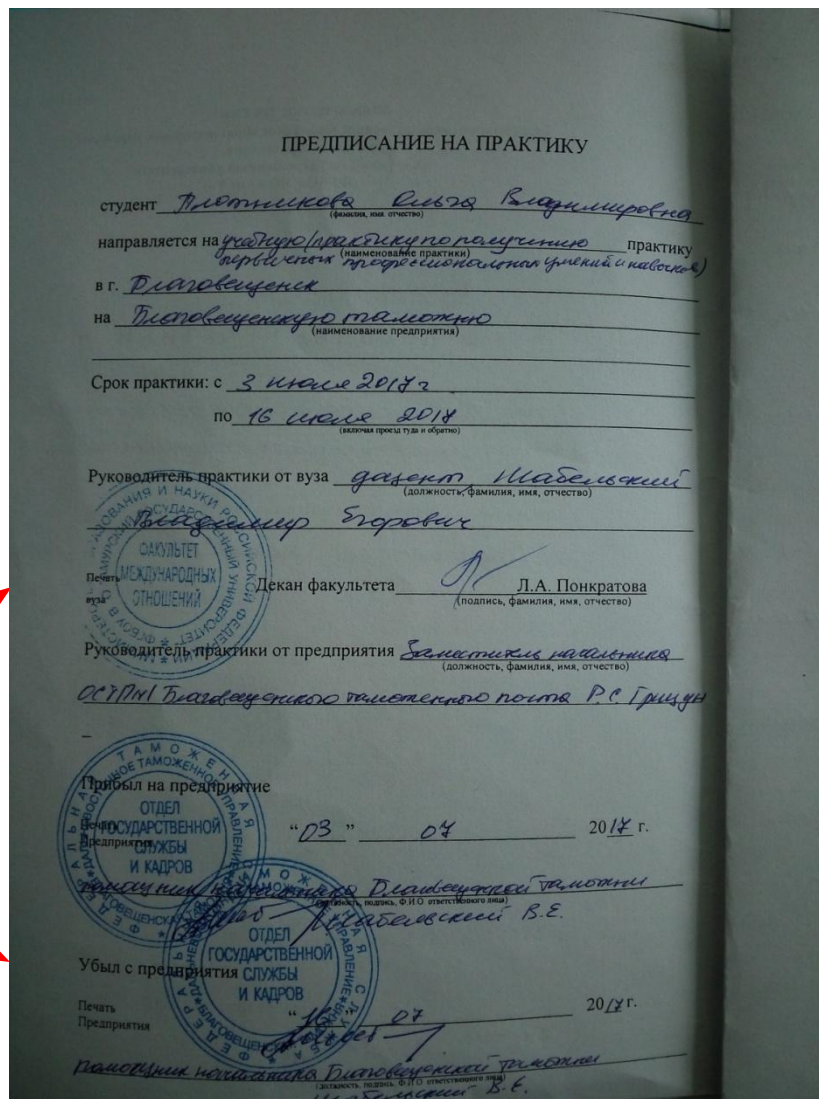 ПРЕДПИСАНИЕ НА ПРАКТИКУ
студент Плотникова Ольга Владимировна
(фамилия, имя отчество)
направляется на учебную (практику по получению практику
(наименование практики)
первичных профессиональных умений и навыков)
в г. Благовещенск
на Благовещенскую таможню
(наименование предприятия)
Срок практики: с 3 июля 2017 г
по 16 июля 2017
(включая проезд туда и обратно)
Руководитель практики от вуза доцент, Шабельский
(должность, фамилия, имя, отчество)
Владимир Егорович
ФАКУЛЬТЕТ
МЕЖДУНАРОДНЫХ
ОТНОШЕНИЙ
Печать
вуза
Декан факультета Л.А. Понкратова
(подпись, фамилия, имя, отчество)
Руководитель практики от предприятия Заместитель начальника
(должность, фамилия, имя, отчество)
ОСТП№1 Благовещенского таможенного поста Р.С. Грицун
Прибыл на предприятие
ОТДЕЛ
ГОСУДАРСТВЕННОЙ
СЛУЖБЫ
И КАДРОВ
Печать
Предприятия
“03” 07 2017 г.
помощник начальника Благовещенской таможни
(должность, подпись, Ф.И.О. ответственного лица)
Шабельский В.Е.
ОТДЕЛ
ГОСУДАРСТВЕННОЙ
СЛУЖБЫ
И КАДРОВ
Убыл с предприятия
Печать
Предприятия
“16” 07 2017 г.
помощник начальника Благовещенской таможни
(должность, подпись, Ф.И.О. ответственного лица)
Шабельский В.Е.